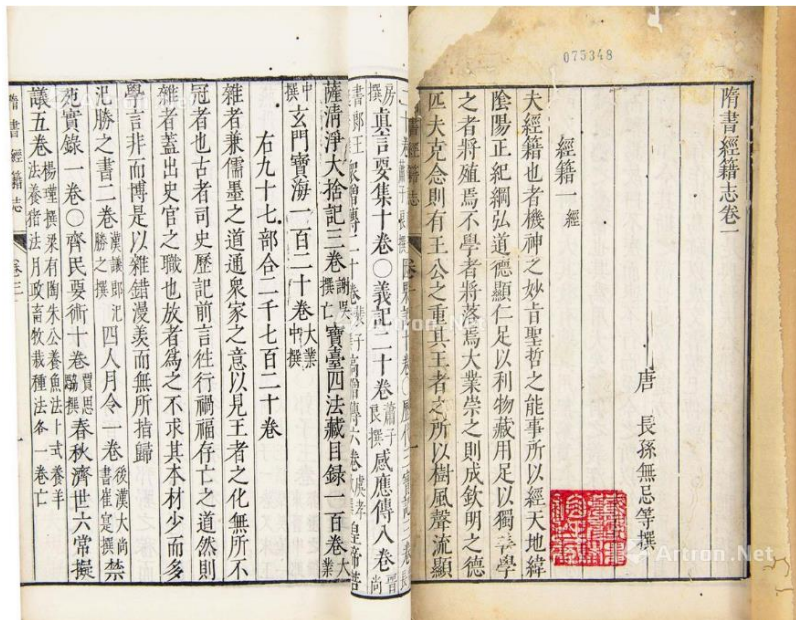 075348
隋書經籍志卷一
唐 長孫無忌等撰
經籍一 經
夫經籍也者機神之妙旨聖哲之能事所以經天地緯
陰陽正紀綱弘道德顯仁足以利物藏用足以獨善學
之者將殖焉不學者將落焉大業崇之則成欽明之德
匹夫克念則有王公之重其王者之所以樹風聲流顯
真言要集十卷〇義記二十卷 蕭子良撰 感應傳八卷 晉尚
書郎王
薩清淨大捨記三卷 謝吳撰亡 寶臺四法藏目錄一百卷 大業
中撰 玄門寶海一百二十卷 大業中撰
右九十七部合二千七百二十卷
雜者兼儒墨之道通衆家之意以見王者之化無所不
冠者也古者司史歷記前言往行禍福存亡之道然則
雜者蓋出史官之職也放者為之不求其本材少而多
學言非而博是以雜錯漫羨而無所指歸
氾勝之書二卷 漢議郎氾勝之撰 四人月令一卷 後漢大尚書崔寔撰 禁
苑實錄一卷〇齊民要術十卷 賈思勰撰 春秋濟世六常擬
議五卷 楊瑾撰梁有陶朱公養魚法卜式養羊法養猪法月政畜牧栽種法各一卷亡
隋書經籍志 卷三
Artron.Net